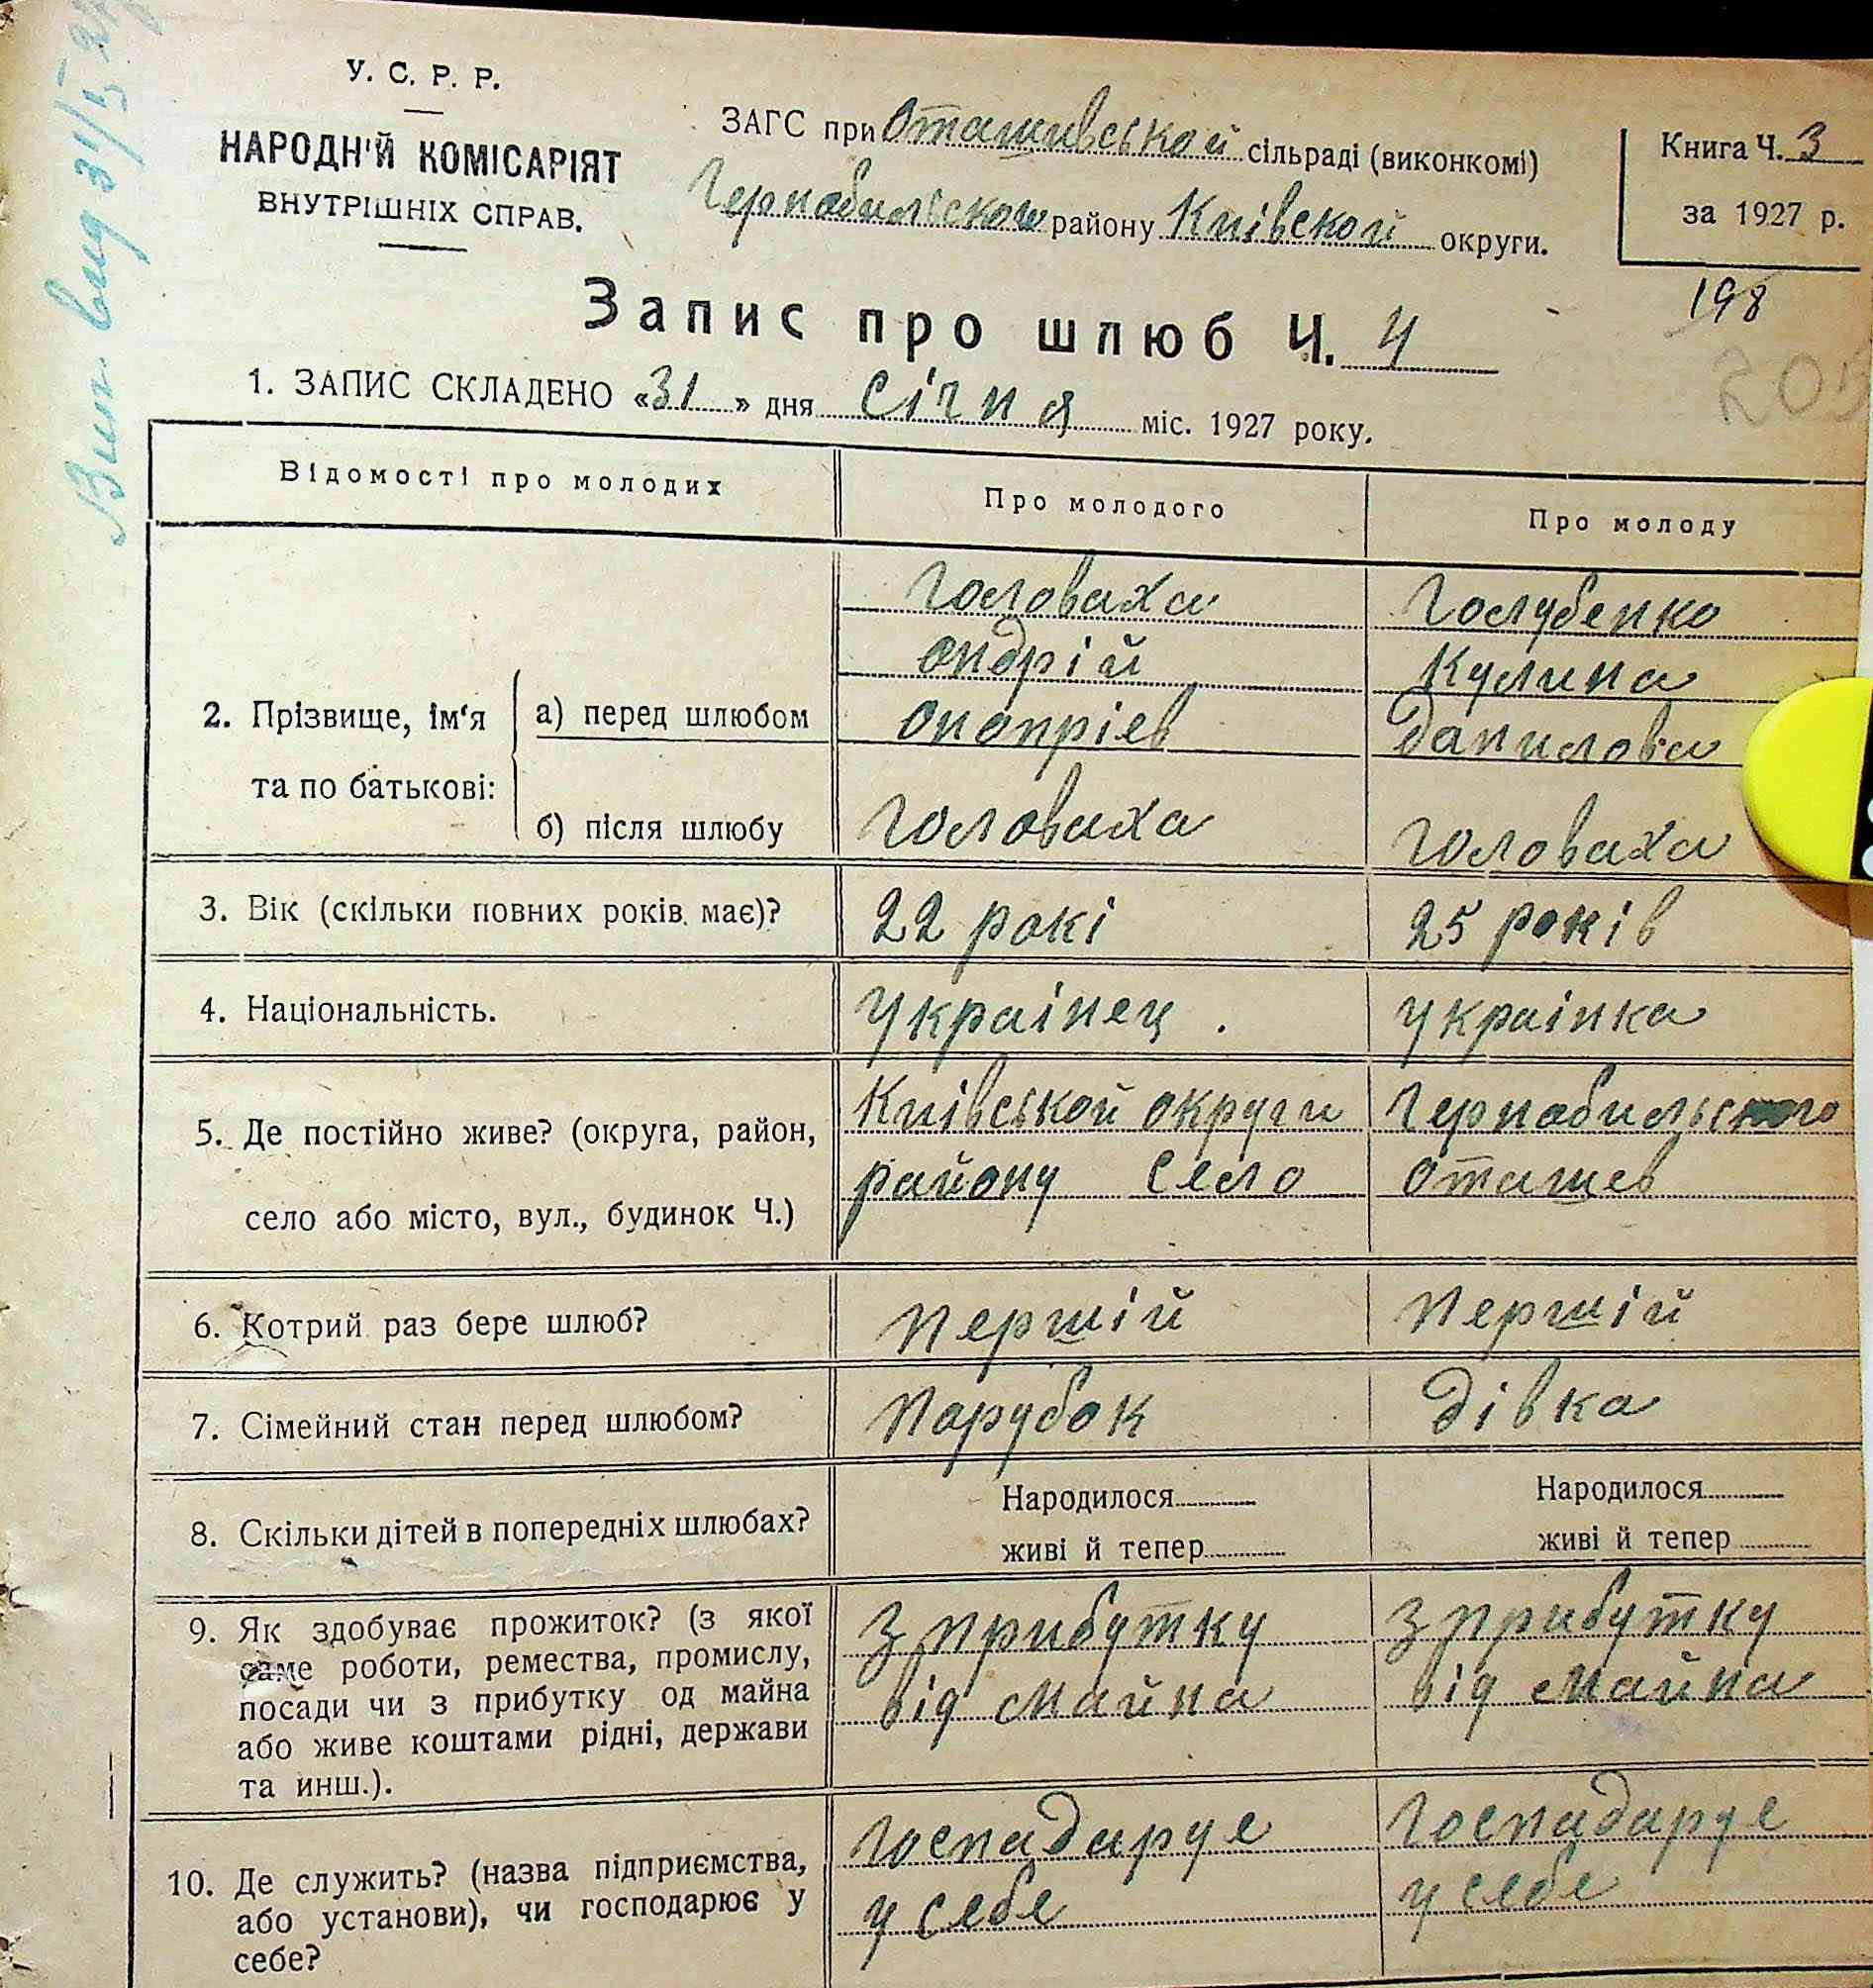 У. С. Р. Р.
НАРОДН'Й КОМІСАРІЯТ
ВНУТРІШНІХ СПРАВ.
ЗАГС при Оташивськой сільраді (виконкомі)
Чернобильского району Київской округи.
Книга Ч. 3
за 1927 р.
198
205
Запис про шлюб Ч. 4
1. ЗАПИС СКЛАДЕНО «31» дня Січня міс. 1927 року.
Відомості про молодих
Про молодого
Про молоду
2. Прізвище, ім'я та по батькові:
а) перед шлюбом
Головаха
Голубенко
Ондрій
Кулина
Онопріев
Данилова
б) після шлюбу
Головаха
Головаха
3. Вік (скільки повних років має)?
22 рокі
25 років
4. Національність.
Українец.
Українка
5. Де постійно живе? (округа, район,
село або місто, вул., будинок Ч.)
Київськой округи Чернобильського
району село Оташев
6. Котрий раз бере шлюб?
Першій
Першій
7. Сімейний стан перед шлюбом?
Парубок
Дівка
8. Скільки дітей в попередніх шлюбах?
Народилося
живі й тепер
Народилося
живі й тепер
9. Як здобуває прожиток? (з якої
саме роботи, ремества, промислу,
посади чи з прибутку од майна
або живе коштами рідні, держави
та инш.).
З прибутку
від майна
З прибутку
від майна
10. Де служить? (назва підприємства,
або установи), чи господарює у
себе?
Госпадаруе
у себе
Госпадаруе
у себе